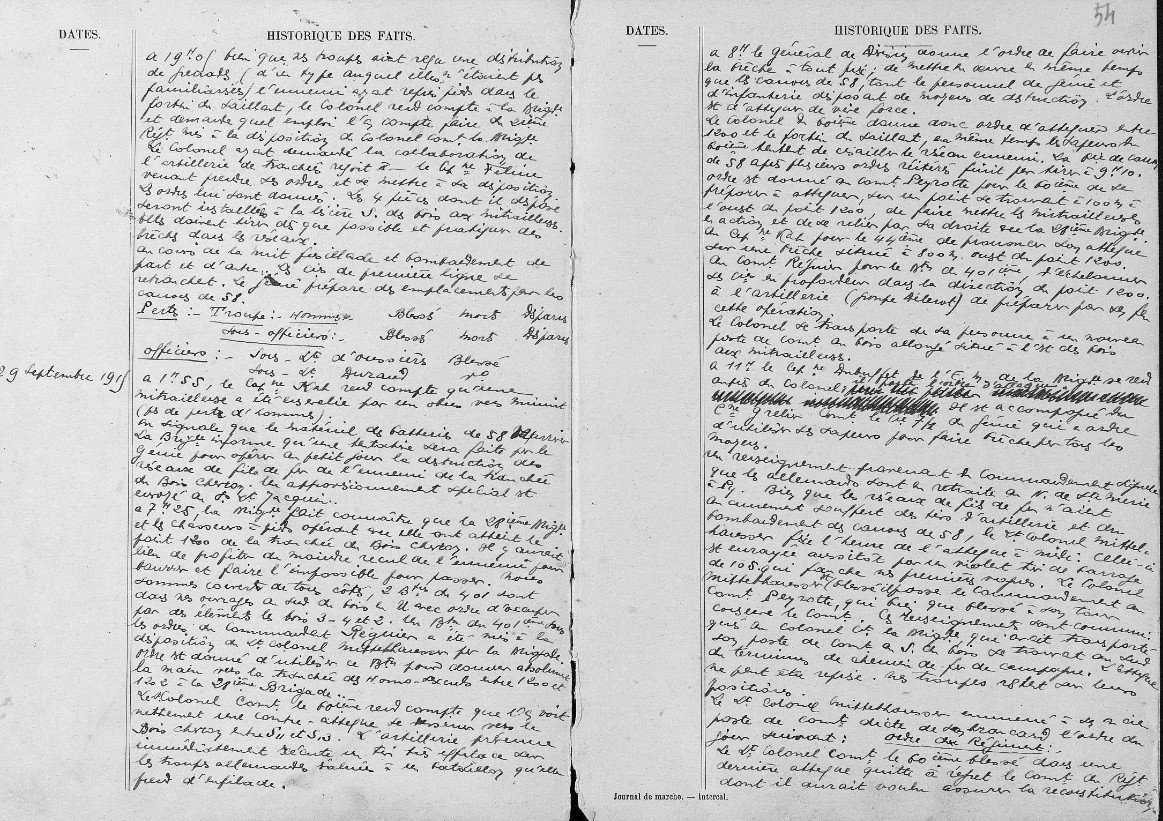 DATES.
HISTORIQUE DES FAITS.
a 19h05 bien que nos troupes aient reçu une distribution
de grenades (d'un type auquel elles n'étaient pas
familiarisées) l'ennemi ayant repris pied dans le
fortin du Saillant, le Colonel rend compte à la Brigte
et demande quel emploi il y compte faire du
Régt mis à la disposition du Colonel comt la Brigte
Le Colonel ayant demandé la collaboration de
l'artillerie de tranchée reçoit à — le Capne
venant prendre ses ordres et se mettre à sa disposition
Les ordres lui sont donnés. Les 4 pièces dont il dispose
seront installées à la lisière S. des bois aux mitrailleuses.
Elles doivent tirer dès que possible et pratiquer des
brèches dans les réseaux.
Au cours de la nuit fusillade et bombardement de
part et d'autre. Les Cies de première ligne se
retranchent. Le génie prépare des emplacements pour les
canons de 58.
Pertes :- Troupe :- Hommes Blessés Morts Disparus
Sous-officiers :- Blessés Morts Disparus
Officiers :- Sous-Lt d'Oussières Blessé
Sous-Lt Durand do
29 Septembre 1915
a 1h55, le Capne Kah rend compte qu'une
mitrailleuse a été ensevelie par un obus vers minuit
(pas de perte d'hommes).
On signale que le matériel des batteries de 58
La Brigte informe qu'une tentative sera faite par le
Génie pour opérer au petit jour la destruction des
réseaux de fils de fer de l'ennemi de la tranchée
du Bois Chevron. Un approvisionnement spécial est
envoyé au Lt Jacquin.
a 7h25, la Brigte fait connaître que la 28ième Brigte
et les Chasseurs à pied opérant avec elle ont atteint le
point 1200 de la tranchée du Bois Chevron. Il y aurait
lieu de profiter du moindre recul de l'ennemi pour
avancer et faire l'impossible pour passer. Nous
sommes couverts de tous côtés, 2 Btns du 401 sont
dans nos ouvrages au Sud du bois en U avec ordre d'occuper
par des éléments les bois 3-4 et 2. Un Btn du 401ième sous
les ordres du Commandant Régnier a été mis à la
disposition du Lt Colonel Mittelhausser par la Brigade
Ordre est donné d'utiliser ce Btn pour donner absolument
la main vers la tranchée des Homosexuels entre 1200 et
1202 à la 28ième Brigade.
Le Colonel Comt le 60ième rend compte que l'on voit
nettement une contre-attaque se dessiner vers le
Bois Chevron et S.O. L'artillerie prévenue
immédiatement exécute un tir très efficace sur
les troupes allemandes évaluées à un bataillon qu'elle
prend d'enfilade.
54
DATES.
HISTORIQUE DES FAITS.
a 8h le général de Division donne l'ordre de faire ouvrir
la brèche à tout prix ; de mettre en œuvre en même temps
que les canons de 58, tout le personnel du génie et
d'infanterie disposant de moyens de destruction. L'ordre
est d'attaquer de vive force.
Le Colonel du 60ième donne donc ordre d'attaquer entre
1200 et le fortin du Saillant, en même temps les sapeurs du
60ième tentent de cisailler le réseau ennemi. La Bie de canons
de 58 après plusieurs ordres réitérés finit par tirer à 9h10.
Ordre est donné au comt Peyrotte pour le 60ième de se
préparer à attaquer, sur un point se trouvant à 100m à
l'ouest du point 1200, de faire mettre les mitrailleuses
en action et de se relier par sa droite avec la 28ième Brigte.
Au Capne Kah pour le 44ème, de prononcer son attaque
sur une brèche située à 800m ouest du point 1200.
Au Comt Régnier pour le Btn du 401ième, d'échelonner
ses Cies en profondeur dans la direction du point 1200.
à l'artillerie (groupe ) de préparer par ses feux
cette opération.
Le Colonel se transporte de sa personne à un nouveau
poste de comt au bois allongé situé à l'Est des bois
aux mitrailleuses.
a 11h le Capne Dubuffet de l'E.M. de la Brigte se rend
auprès du Colonel. Il est accompagné du
Cne Grelier Comt la Cie 7/2 du génie qui a ordre
d'utiliser ses sapeurs pour faire brèche par tous les
moyens.
Un renseignement provenant du Commandement signale
que les allemands sont en retraite au N. de Ste Marie
à Py. Bien que les réseaux de fils de fer n'aient
aucunement souffert des tirs d'artillerie et du
bombardement des canons de 58, le Lt Colonel Mittel-
hausser fixe l'heure de l'attaque à midi. Celle-ci
est enrayée aussitôt par un violent tir de barrage
de 105 qui fauche nos premières vagues. Le Colonel
Mittelhausser est blessé passe le Commandement au
Comt Peyrotte, qui bien que blessé à son tour
conserve le Comt. Ces renseignements sont communi-
qués au Colonel Ct la Brigte, que avait transporté
son poste de Comt au S. du bois se trouvant au Sud
du terminus du chemin de fer de campagne. L'attaque
ne peut être reprise. Nos troupes restent sur leurs
positions.
Le Lt Colonel Mittelhausser emmené à
poste de comt dicte de son brancard l'ordre du
jour suivant : Ordre du Régiment :
Le Lt Colonel Comt le 60ième blessé dans une
dernière attaque quitte à regret le Comt du Régt
dont il aurait voulu assurer la reconstitution.
Journal de marche. — Intercal.